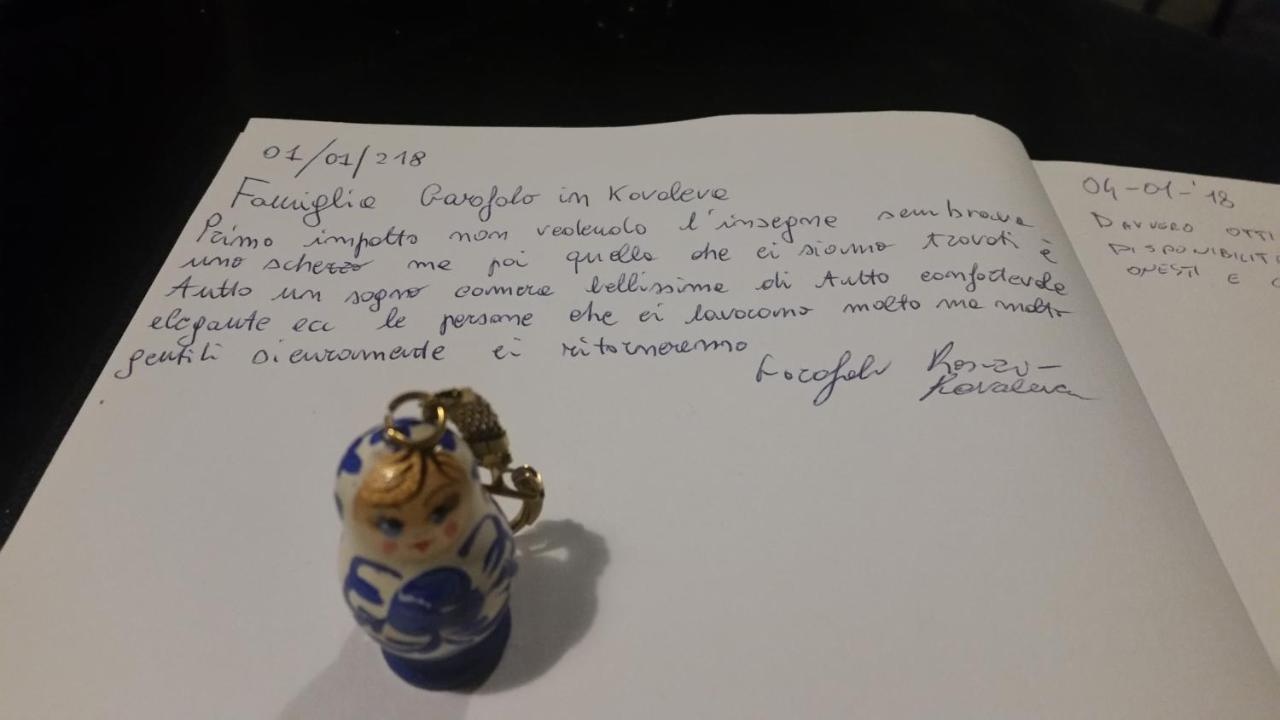 01/01/218
Famiglia Garofolo in Kovaleva
Primo impatto non vedendo l'insegne sembrava
uno scherzo ma poi quello che ci siamo trovati è
tutto un sogno camera bellissima di tutto confodevole
elegante ecc le persone che ci lavocano molto ma molto
gentili sicuramente ci ritorneremo
Garofolo
Kovaleva
04-01-'18
DAVVERO OTTI
DISPONIBILIT
ONESTI E